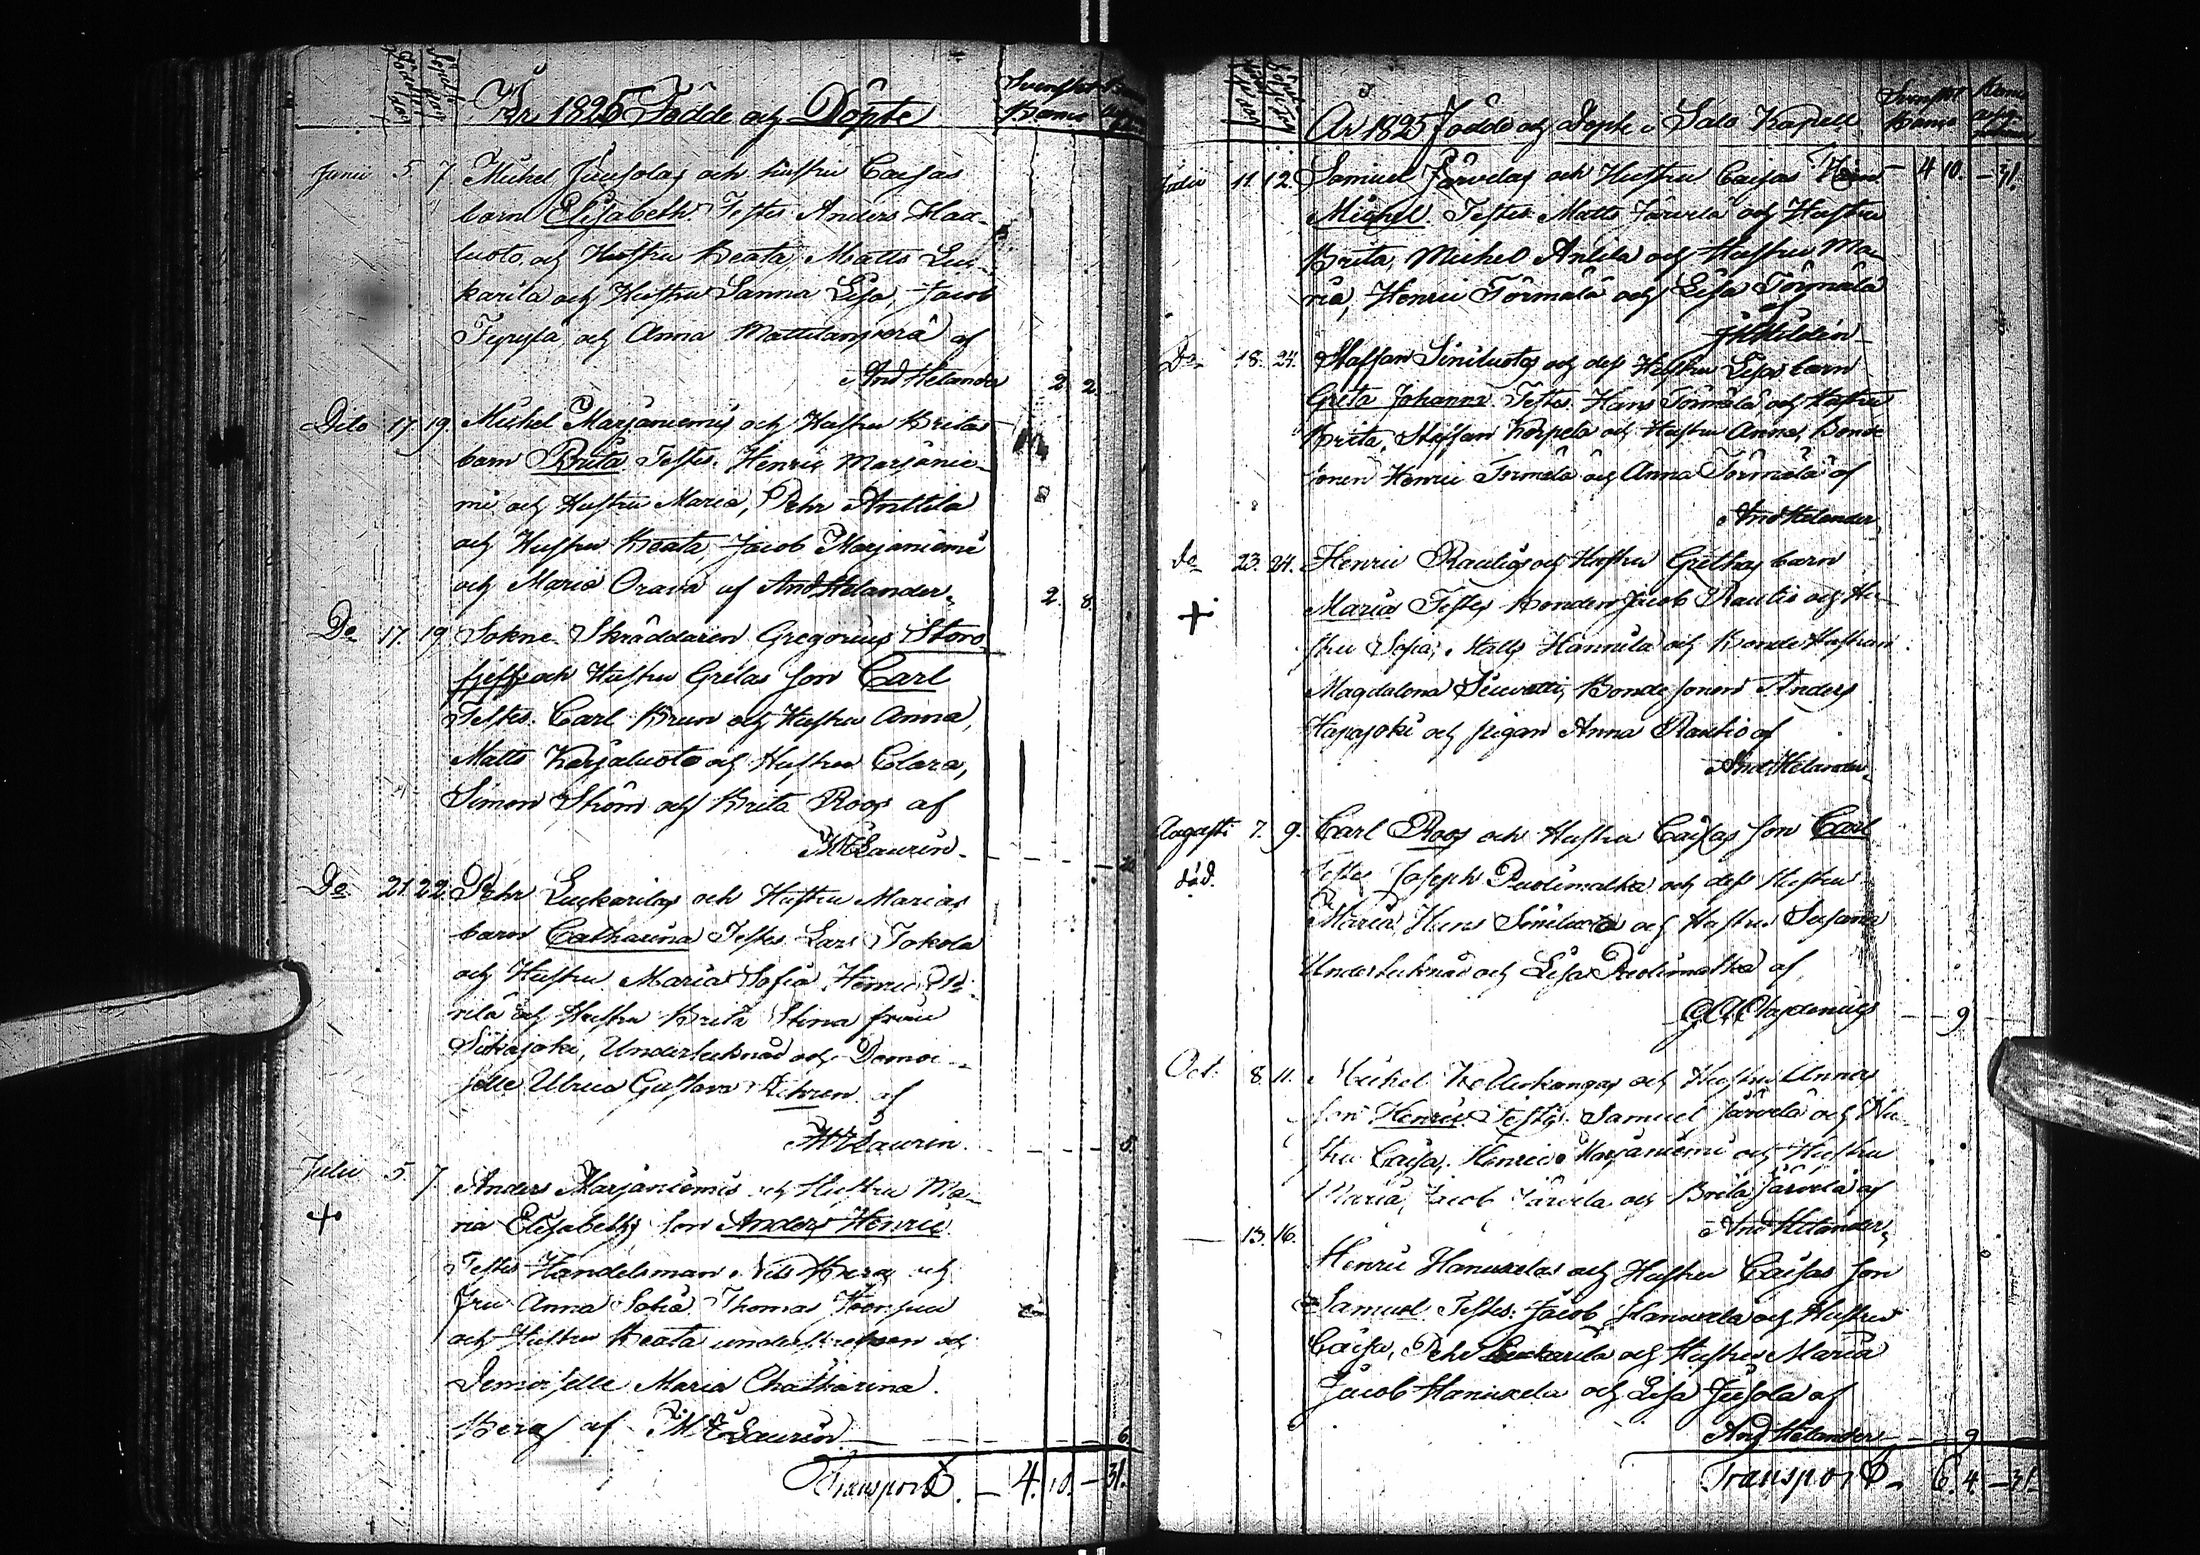 År 1825 Födde och Döpte
Svenskt Banco
Junii 5. 7. Michel Juusolas och hustru Caisas
barn Elisabeth. Testes Anders Haa-
luoto och Hustru Beata, Matts Luc-
karila och Hustru Sanna Lisa, Jacob
och Anna af
And Helander 2. 2.
Dito 17. 19. Michel Marjaniemis och Hustru Britas
barn Brita Testes. Henric Marjanie-
mi och Hustru Maria, Pehr Anttila
och Hustru Beata, Jacob Marjaniemi
och Maria Orava af And Helander. 2. 8.
Do 17. 19. Sokne Skräddaren Gregorius Storo-
fjeffs och Hustru Gretas son Carl
Testes. Carl Brun och Hustru Anna,
Matts Karjaluoto och Hustru Clara,
Simon Ström och Brita Roos af
Laurin.
Do 21. 22. Pehr Luckarilas och Hustru Marias
barn Catharina Testes. Lars Jokela
och Hustru Maria Sofia, Henric
och Hustru Brita Stina från
Siikajoki, Undertecknad och Demoi-
selle Ulrica Gustava af
Laurin. 5.
Julii 5. 7. Anders Marjaniemis och Hustru Ma-
+ ria Elisabeths son Anders Henric
Testes Handelsman Nils Berg och
Fru Anna Sofia, Thomas
och Hustru Beata underskrefven och
Demoiselle Maria Chatharina
Berg af Laurin 6.
Transport. 4. 10. 31.
År 1825 Födde och Döpte i Salo Kapell
Svenskt Banco
Julii 11. 12. Samuel Järvelas och Hustru Caisas barn 4 10. 31.
Michel. Testes Matts Järvelä och Hustru
Brita, Michel Anttila och Hustru Ma-
ria, Henric Törmälä och Lisa Törmälä
af
Do 18. 24. Staffan Siniluotos och dess Hustru Lisas barn
Greta Johanna. Testes. Hans Törmälä och Hustru
Brita, Staffan Korpela och Hustru Anna, Bonde
sonen Henric Törmälä och Anna Törmälä af
And Helander,
Do 23. 24. Henric Rautios och Hustru Grethas barn
+ Maria Testes Bonden Jacob Rautio och Hu-
stru Sofia, Matts Hannila och Bonde Hustrun
Magdalena Siuvatti, Bondesonen Anders
Hapajoki och pigan Anna Rautio af
And Helander.
Augusti 7. 9. Carl Roos och Hustru Caisas son Carl
död. Testes Joseph Puolimatka och dess Hustru
Maria, Hans Siniluoto och Hustru Susanna
Undertecknad och Lisa Puolimatka af
9
Oct. 8. 11. Michel Kellinkangas och Hustru Annas
son Henric. Testes. Samuel Järvelä och Hu-
stru Caisa, Henric Marjaniemi och Hustru
Maria, Jacob Järvelä och Brita Järvelä af
And Helander,
13. 16. Henric Hanuxelas och Hustru Caisas son
Samuel. Testes. Jacob Hanuxela och Hustru
Caisa, Pehr Luckarila och Hustru Maria
Jacob Hanuxela och Lisa Jusola af
And Helander 9
Transport 6. 4. 31.